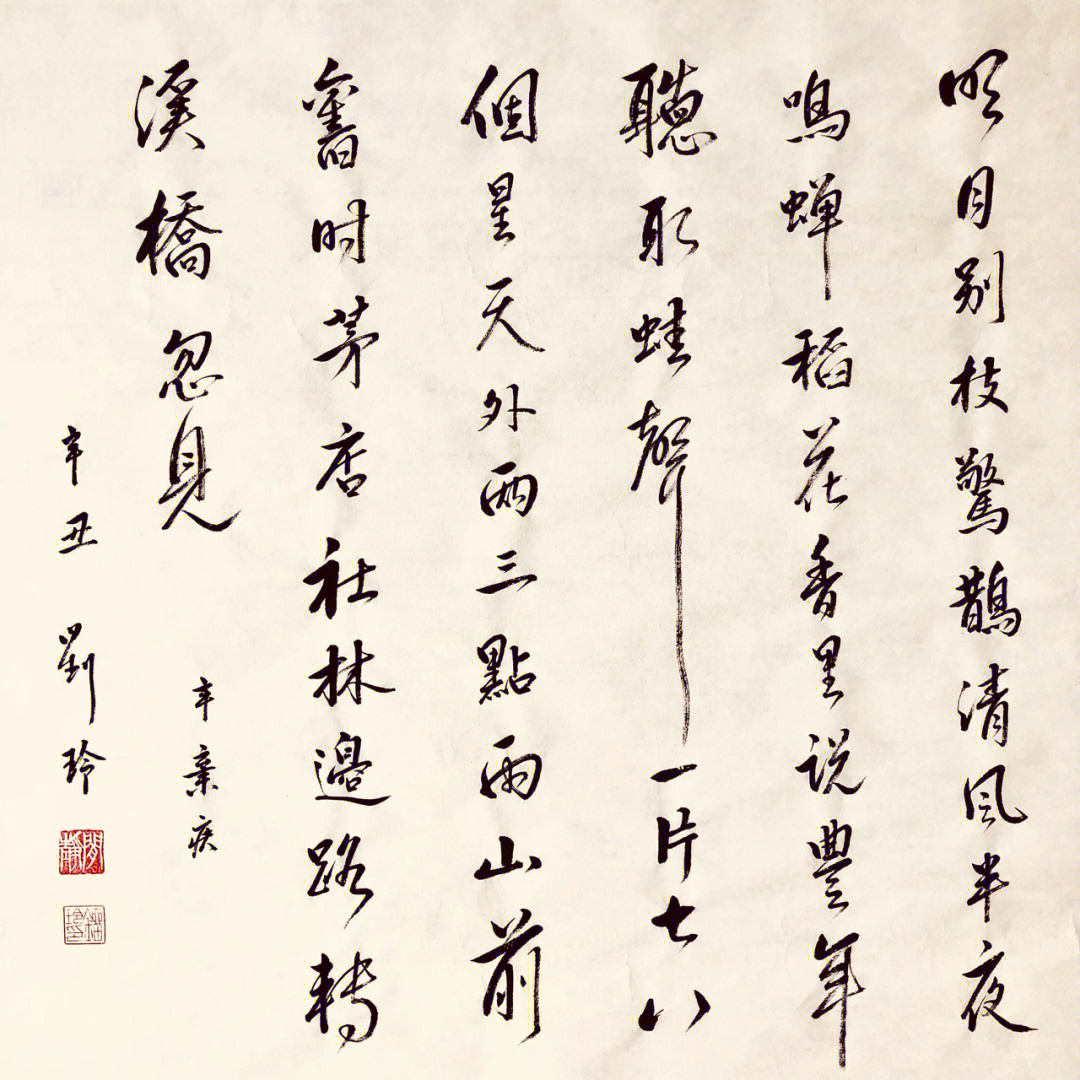 明月别枝驚鵲清风半夜
鳴蝉稻花香里说豐年
聽取蛙聲一片七八
個星天外兩三點雨山前
舊时茅店社林邊路轉
溪橋忽見
辛棄疾
辛丑 劉玲